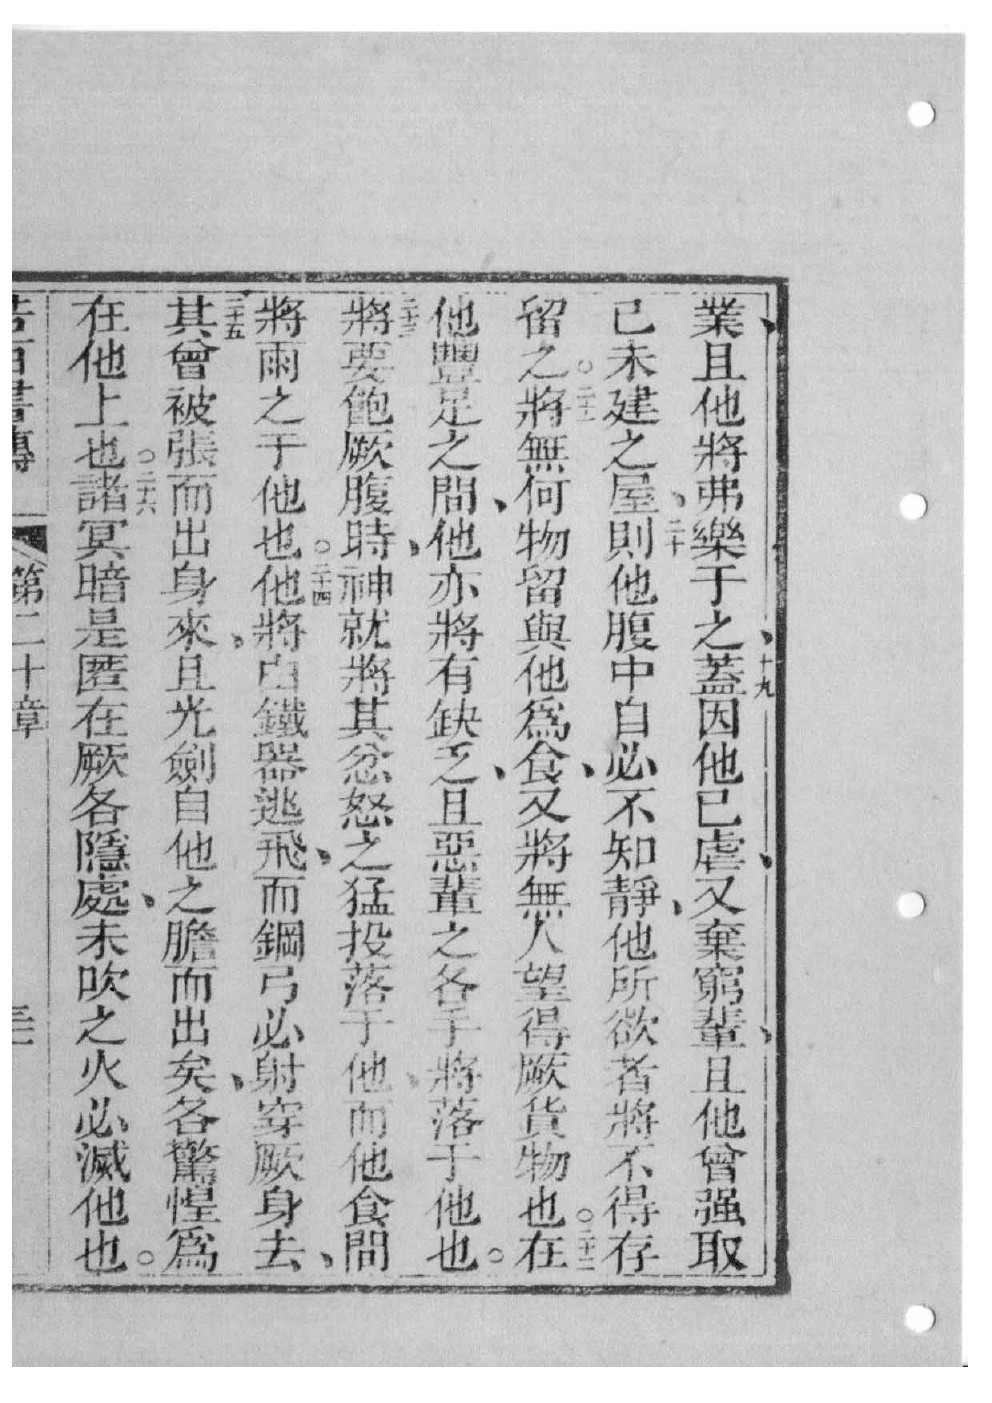 業、且他將弗樂于之、十九蓋因他已虐、又棄窮輩、且他曾强取
已未建之屋、二十則他腹中自必不知靜、他所欲者將不得存
留之。二十一將無何物留與他爲食、又將無人望得厥貨物也。二十二在
他豐足之間、他亦將有缺乏、且惡輩之各手將落于他也。
二十三將要飽厥腹時、神就將其忿怒之猛投落于他、而他食間
將雨之于他也。二十四他將由鐵器逃飛、而鋼弓必射穿厥身去、
二十五其曾被張而出身來、且光劍自他之膽而出矣、各驚惶爲
在他上也。二十六諸冥暗是匿在厥各隱處、未吹之火必滅他也。
若百書傳 第二十章 三二